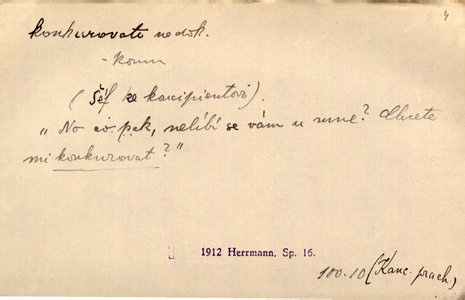 4
konkurovati nedok.
- komu
(Šéf ke koncipientovi).
„No co pak, nelíbí se vám u mne? Chcete
mi konkurovat?"
1912 Herrmann, Sp. 16.
100-10 (Kanc. prach.)